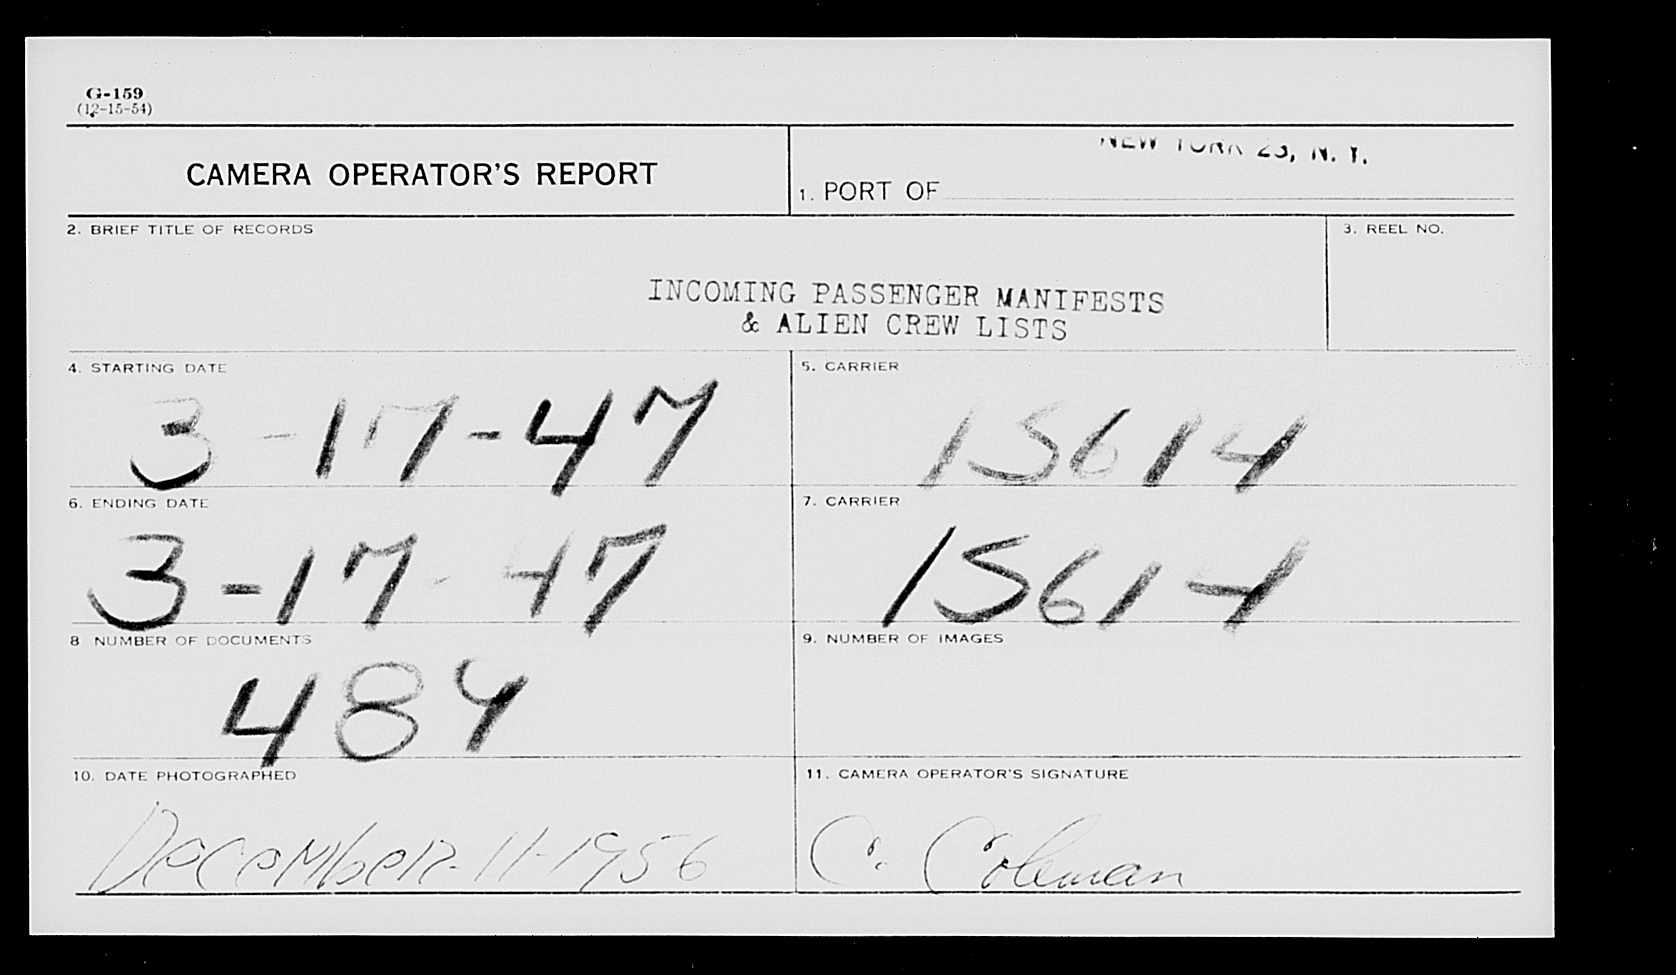 G-159
(12-15-54)
CAMERA OPERATOR'S REPORT
NEW YORK 23, N. Y.
1. PORT OF
2. BRIEF TITLE OF RECORDS
3. REEL NO.
INCOMING PASSENGER MANIFESTS
& ALIEN CREW LISTS
4. STARTING DATE
3-17-47
5. CARRIER
15614
6. ENDING DATE
3-17-47
7. CARRIER
15614
8 NUMBER OF DOCUMENTS
484
9. NUMBER OF IMAGES
10. DATE PHOTOGRAPHED
December-11-1956
11. CAMERA OPERATOR'S SIGNATURE
C. Coleman